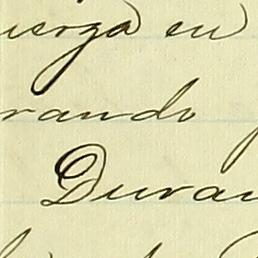 uerza en
rando
Duran